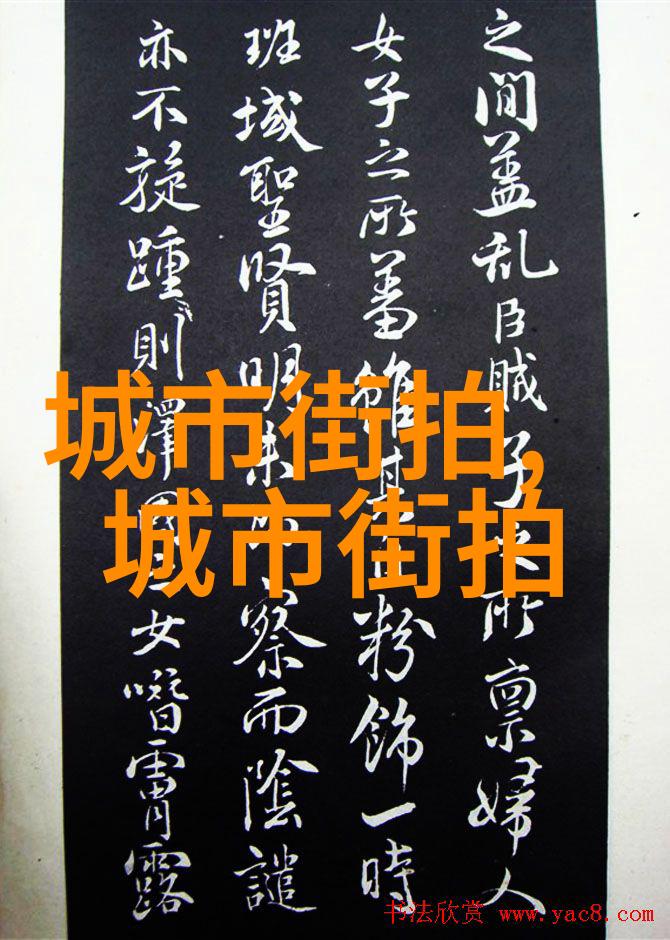 之間蓋乱臣賊子之所禀婦人
女子之所蓄雖其粉飾一時
班域聖賢明察而陰譴
亦不旋踵則澤女霄露
城市街拍,
城市街拍
书法欣赏 www.yac8.com